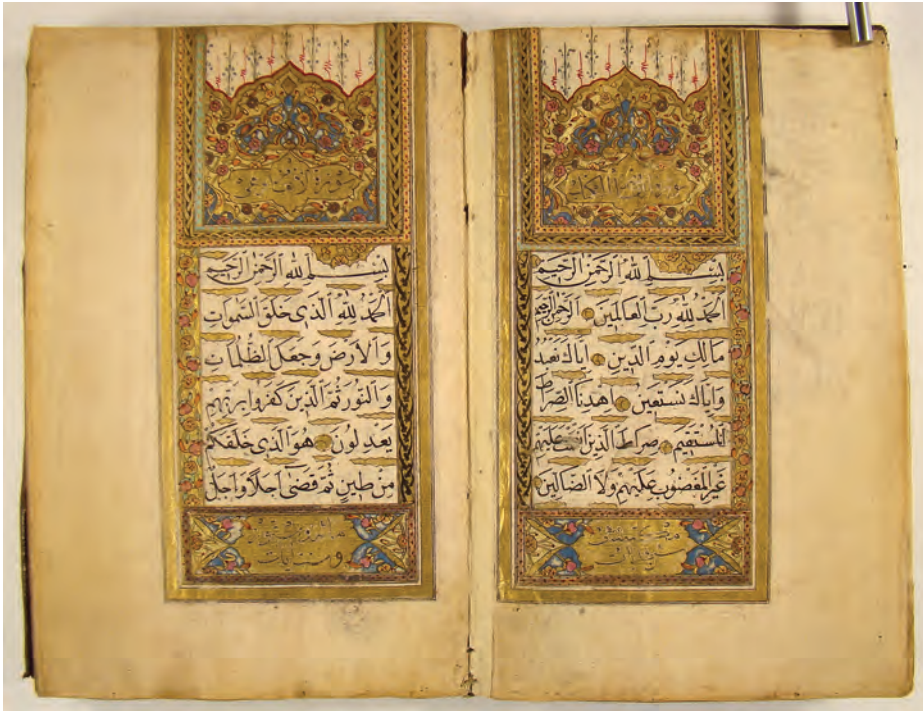 بِسْمِ اللهِ الرَّحْمٰنِ الرَّحِيمِ
اَلْحَمْدُ لِلّٰهِ رَبِّ الْعَالَمِينَ الرَّحْمٰنِ الرَّحِيمِ
مَالِكِ يَوْمِ الدِّينِ اِيَّاكَ نَعْبُدُ
وَاِيَّاكَ نَسْتَعِينُ اِهْدِنَا الصِّرَاطَ
الْمُسْتَقِيمَ صِرَاطَ الَّذِينَ اَنْعَمْتَ عَلَيْهِمْ
غَيْرِ الْمَغْضُوبِ عَلَيْهِمْ وَلَا الضَّالِّينَ
سورة الانعام
بِسْمِ اللهِ الرَّحْمٰنِ الرَّحِيمِ
اَلْحَمْدُ لِلّٰهِ الَّذِي خَلَقَ السَّمٰوَاتِ
وَالْاَرْضَ وَجَعَلَ الظُّلُمَاتِ
وَالنُّورَ ثُمَّ الَّذِينَ كَفَرُوا بِرَبِّهِمْ
يَعْدِلُونَ هُوَ الَّذِي خَلَقَكُمْ
مِنْ طِينٍ ثُمَّ قَضٰى اَجَلًا وَاَجَلٌ